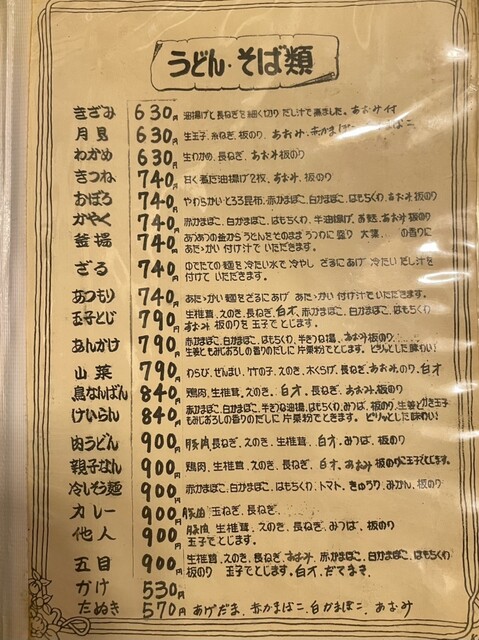 うどん・そば類
きざみ 630円 油揚げと長ねぎを細く切り だし汁で煮ました。あおみ付
月見 630円 生玉子、糸ねぎ、板のり、あおみ、赤かまぼこ
わかめ 630円 生わかめ、長ねぎ、あおみ 板のり
きつね 740円 甘く煮た油揚げ2枚、あおみ、板のり
おぼろ 740円 やわらかいとろろ昆布、赤かまぼこ、白かまぼこ、はもちくわ、あおみ 板のり
かやく 740円 赤かまぼこ、白かまぼこ、はもちくわ、半油揚げ、お麩、あおみ 板のり
釜揚 740円 あつあつの釜からうどんをそのまま うつわに盛り 大葉 の香りに
あたゝかい 付け汁でいただきます。
ざる 740円 ゆでたての麺を冷たい水で冷やし ざるにあげ 冷たい だし汁を
付けて いただきます。
あつもり 740円 あたゝかい麺をざるにあげ あたゝかい 付け汁でいただきます。
玉子とじ 790円 生椎茸、えのき、長ねぎ、白才、赤かまぼこ、白かまぼこ、はもちくわ
あおみ 板のりを 玉子でとじます。
あんかけ 790円 赤かまぼこ、白かまぼこ、はもちくわ、半きつね揚、あおみ 板のり
生姜ともみじおろしの香りのだしに 片栗粉でとじます。ピリッとした味わい!
山菜 790円 わらび、ぜんまい、竹の子、えのき、木くらげ、長ねぎ、あおみ、板のり、白才
鳥なんばん 840円 鶏肉、生椎茸、えのき、白才、長ねぎ、あおみ、板のり
けいらん 840円 赤かまぼこ、白かまぼこ、半きつね油揚、はもちくわ、みつば、板のり、生姜とかき玉子
もみじおろしの香りのだしに 片栗粉でとじます。ピリッとした味わい!
肉うどん 900円 豚肉、長ねぎ、えのき、生椎茸、白才、みつば、板のり
親子なん 900円 鶏肉、生椎茸、えのき、長ねぎ、白才、あおみ 板のりに玉子でとじます。
冷しそう麺 900円 赤かまぼこ、白かまぼこ、はもちくわ、トマト、きゅうり、みかん、板のり
カレー 900円 豚肉 玉ねぎ、長ねぎ
他人 900円 豚肉 生椎茸、えのき、長ねぎ、みつば、板のり
玉子でとじます。
五目 900円 生椎茸、えのき、長ねぎ、あおみ、赤かまぼこ、白かまぼこ、はもちくわ
板のり 玉子でとじます。白才、だてまき、
かけ 530円
たぬき 570円 あげだま、赤かまぼこ、白かまぼこ、あおみ